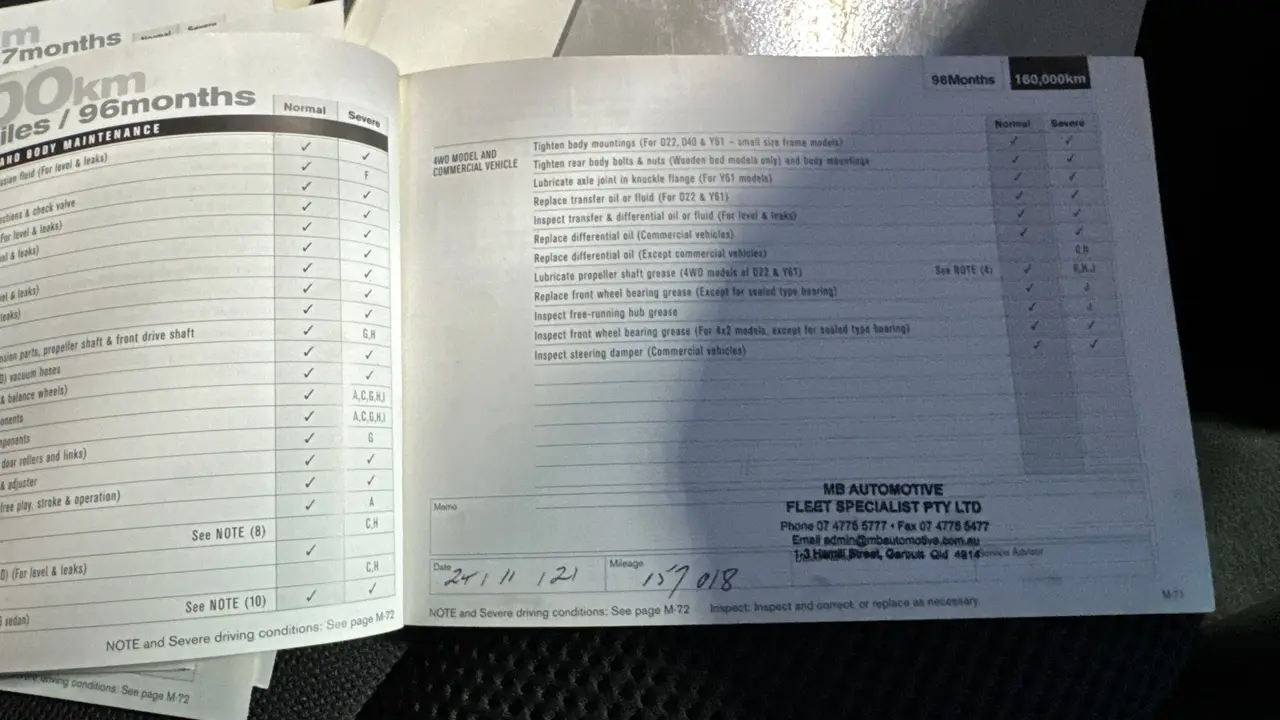 m
7months
Normal Severe
00km
iles / 96months
Normal Severe
AND BODY MAINTENANCE
ssion fluid (For level & leaks) ✓ ✓
✓ F
ections & check valve ✓ ✓
For level & leaks) ✓ ✓
oil & leaks) ✓ ✓
✓ ✓
vel & leaks) ✓ ✓
leaks) ✓ ✓
✓ ✓
nsion parts, propeller shaft & front drive shaft ✓ G,H
) vacuum hoses ✓ ✓
& balance wheels) ✓ ✓
onents ✓ A,C,G,H,I
mponents ✓ A,C,G,H,I
door rollers and links) ✓ G
& adjuster ✓ ✓
free play, stroke & operation) ✓ ✓
✓ A
See NOTE (8) C,H
✓
) (For level & leaks) C,H
sedan) See NOTE (10) ✓ ✓
NOTE and Severe driving conditions: See page M-72
driving conditions: See page M-72
96Months 160,000km
Normal Severe
4WD MODEL AND
COMMERCIAL VEHICLE
Tighten body mountings (For D22, D40 & Y61 – small size frame models) ✓ ✓
Tighten rear body bolts & nuts (Wooden bed models only) and body mountings ✓ ✓
Lubricate axle joint in knuckle flange (For Y61 models) ✓ ✓
Replace transfer oil or fluid (For D22 & Y61) ✓ ✓
Inspect transfer & differential oil or fluid (For level & leaks) ✓ ✓
Replace differential oil (Commercial vehicles) ✓ ✓
Replace differential oil (Except commercial vehicles) G,H
Lubricate propeller shaft grease (4WD models of D22 & Y61) See NOTE (4) ✓ G,H,J
Replace front wheel bearing grease (Except for sealed type bearing) ✓ J
Inspect free-running hub grease ✓ J
Inspect front wheel bearing grease (For 4x2 models, except for sealed type bearing) ✓ ✓
Inspect steering damper (Commercial vehicles) ✓ ✓
Memo
MB AUTOMOTIVE
FLEET SPECIALIST PTY LTD
Phone 07 4775 5777 • Fax 07 4775 5477
Email admin@mbautomotive.com.au
1-3 Hamill Street, Garbutt Qld 4814
Service Advisor
Date 24 / 11 / 21
Mileage 157 018
NOTE and Severe driving conditions: See page M-72 Inspect: Inspect and correct, or replace as necessary.
M-71